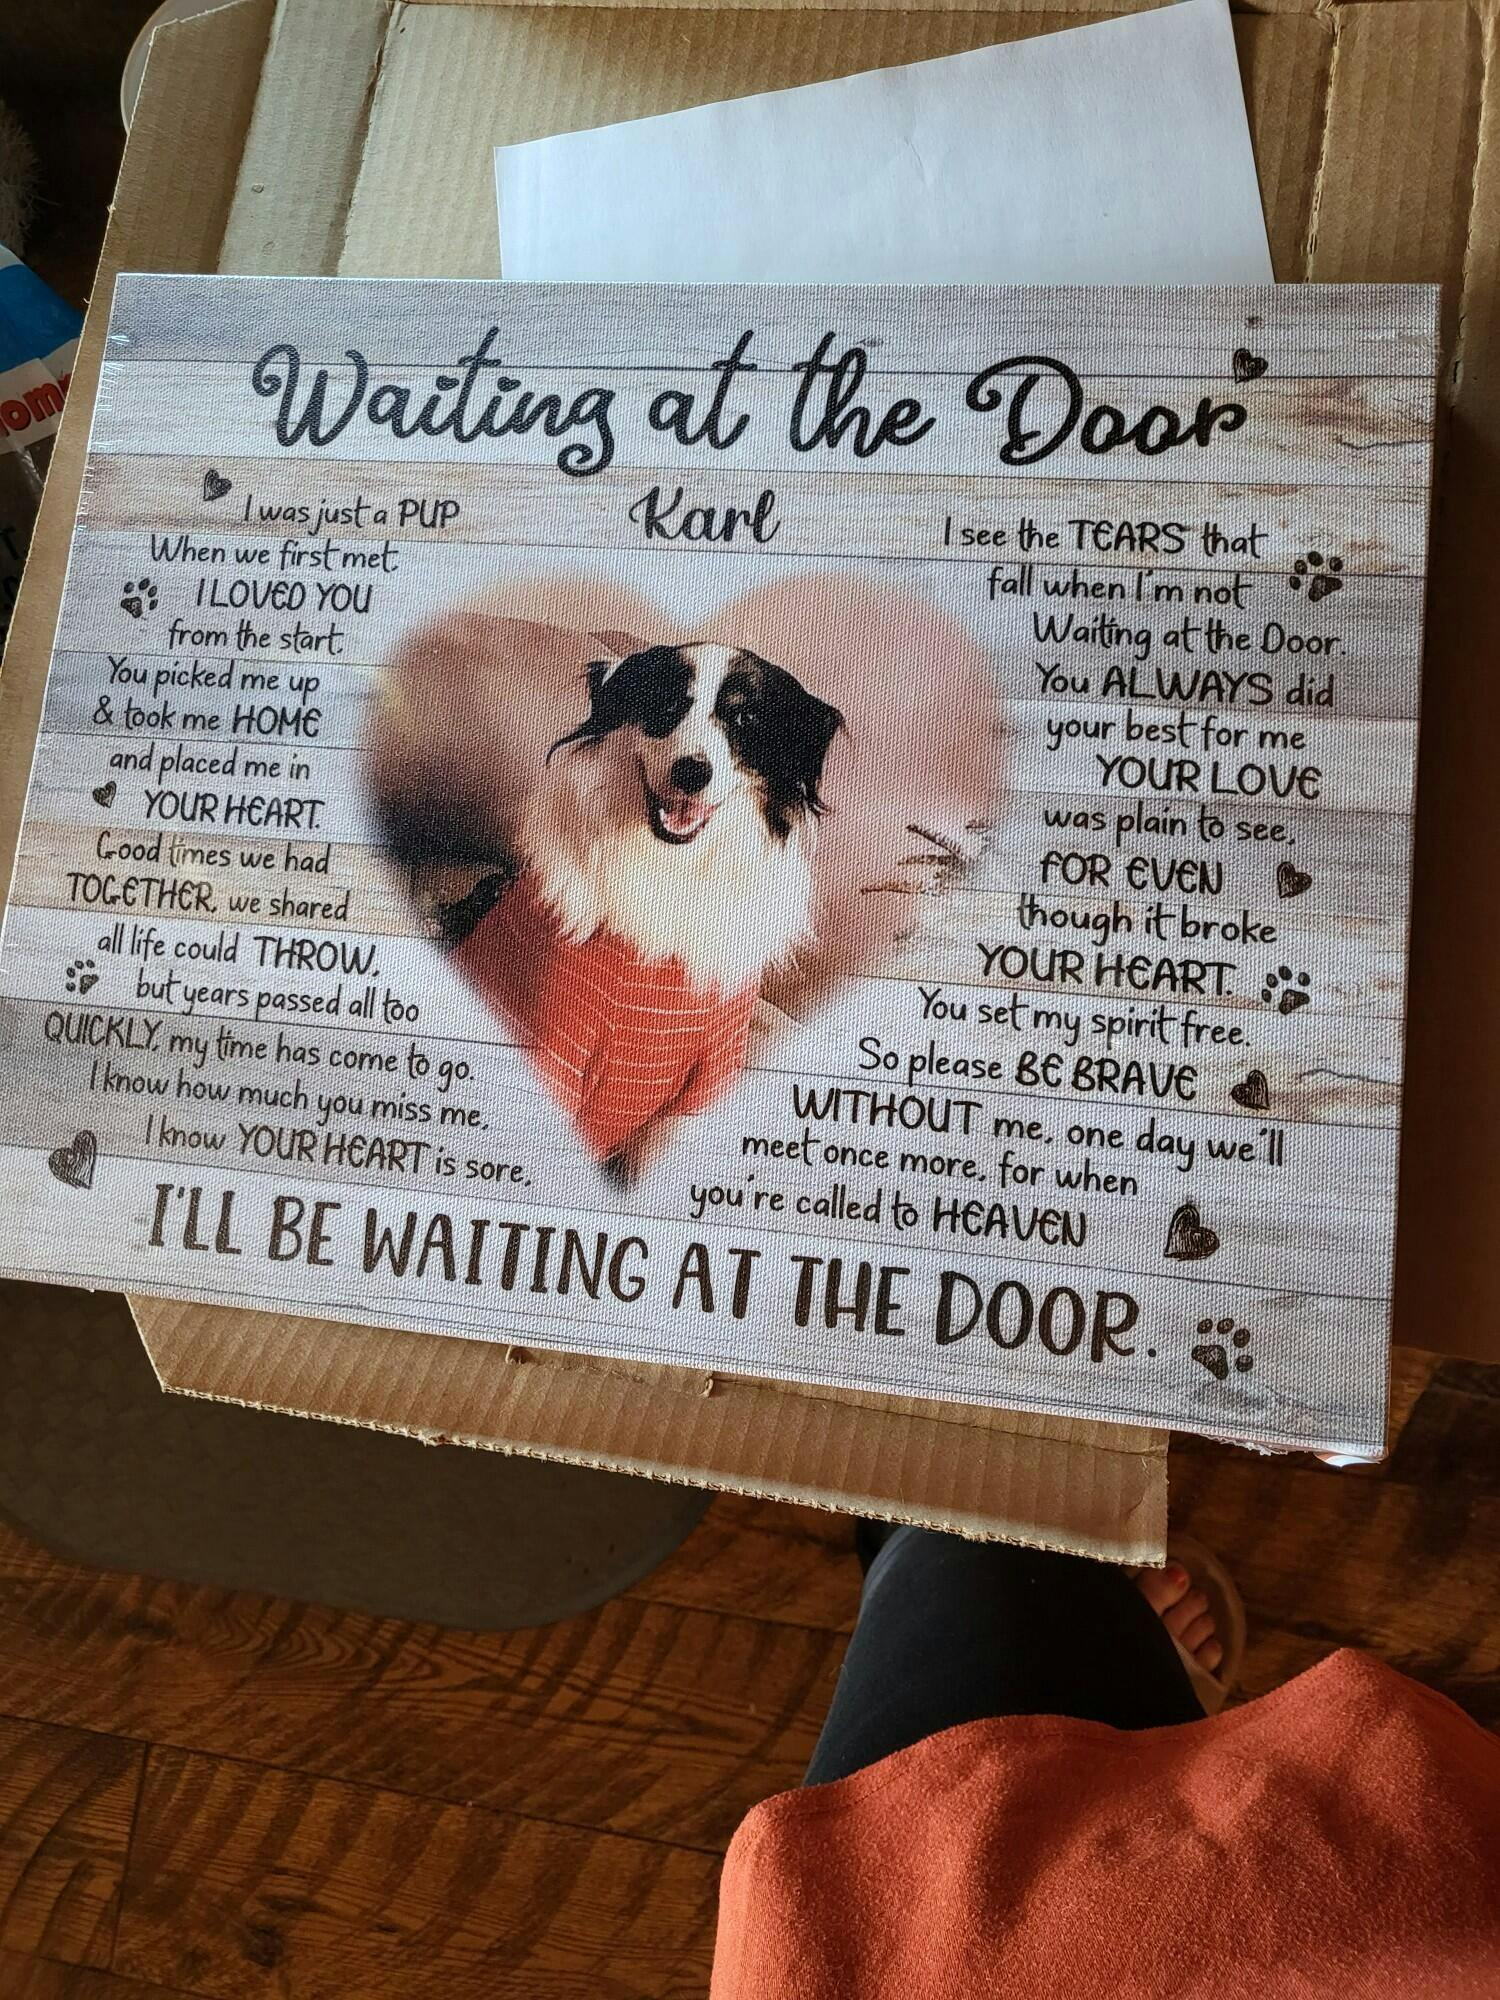 Waiting at the Door
Karl
I was just a PUP
When we first met.
I LOVED YOU
from the start.
You picked me up
& took me HOME
and placed me in
YOUR HEART.
Good times we had
TOGETHER, we shared
all life could THROW,
but years passed all too
QUICKLY, my time has come to go.
I know how much you miss me,
I know YOUR HEART is sore,
I see the TEARS that
fall when I'm not
Waiting at the Door.
You ALWAYS did
your best for me
YOUR LOVE
was plain to see,
FOR EVEN
though it broke
YOUR HEART.
You set my spirit free.
So please BE BRAVE
WITHOUT me, one day we'll
meet once more, for when
you're called to HEAVEN
I'LL BE WAITING AT THE DOOR.